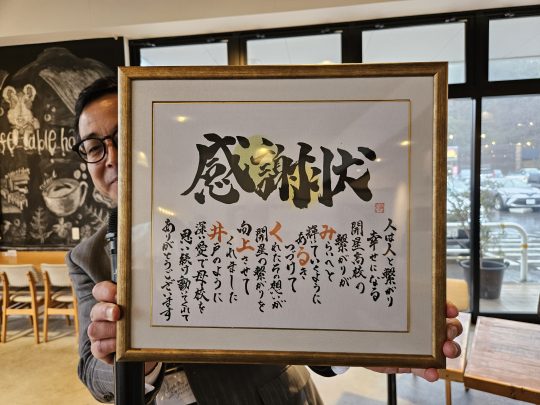 感謝状
人は人と繋がり
幸せになる
開星高校の
繋がりが
みらいへと
いくように
あるき
つづけて
くれたその想いが
開星の繋がりを
向上させて
くれました
井戸のように
深い愛で母校を
思い続け動いてくれて
ありがとうございます
table